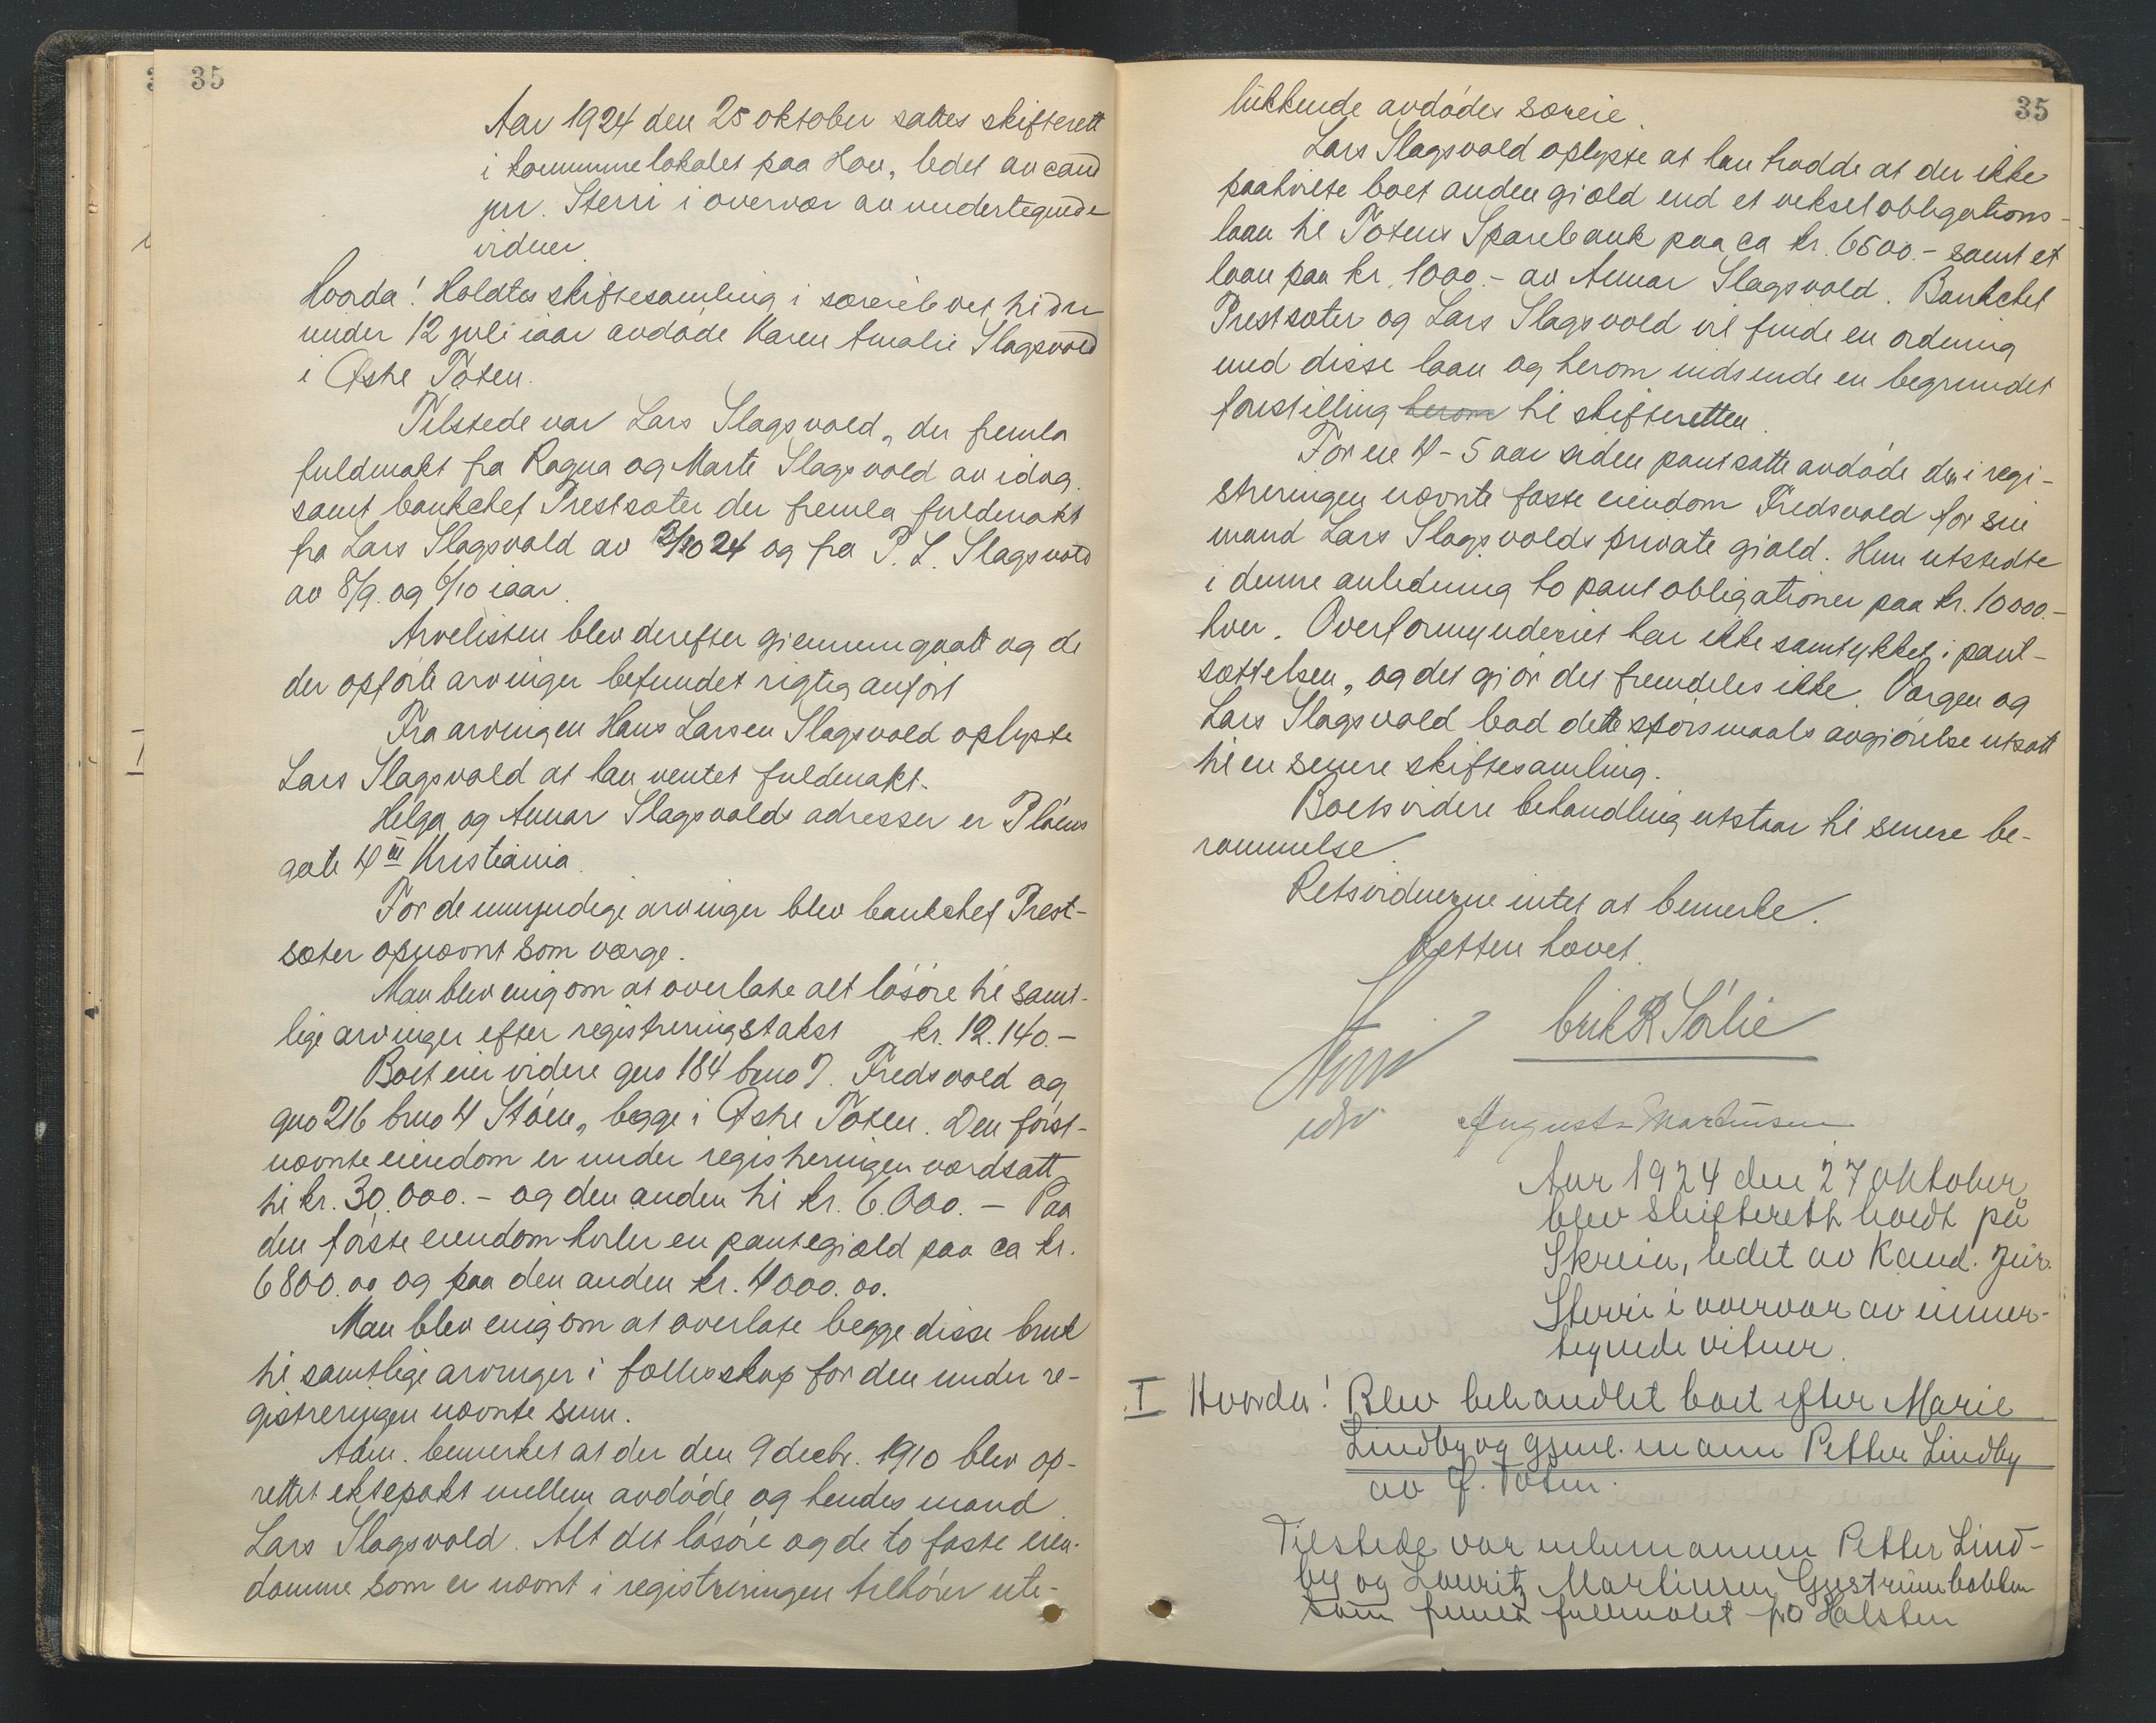 35
Aar 1924 den 25 oktober sattes skifterett
i kommunelokalet paa Hov, ledet av cand
jur. Sterri i overvær av undertegnede
vidner.
Hvorda! Holdtes skiftesamling i særeieboet til den
under 12 juli iaar avdøde Karen Amalie Slagsvold
i Østre Toten.
Tilstede var Lars Slagsvold, der fremla
fuldmakt fra Ragna og Marte Slagsvold av idag.
samt bankchef Prestsæter der fremla fuldmakt
fra Lars Slagsvold av 2/10 24 og fra P. L. Slagsvold
av 8/9. og 6/10 iaar.
Arvelisten blev derefter gjennemgaatt og de
der opførte arvinger befundet rigtig anført
Fra arvingen Hans Larsen Slagsvold oplyste
Lars Slagsvold at han ventet fuldmakt.
Helga og Annar Slagsvolds adresser er Pløens
gate 4 III Kristiania.
For de umyndige arvinger blev bankchef Prest-
sæter opnævnt som værge.
Man blev enig om at overlate alt løsøre til samt-
lige arvinger efter registreringstakst kr. 12.140.-
Boet eier videre gno 184 bno 7. Fredsvold og
gno 216 bno 4 Støen, begge i Østre Toten. Den først-
nævnte eiendom er under registreringen værdsatt
til kr. 30.000.- og den anden til kr. 6.000.- Paa
den første eiendom hviler en pantegjæld paa ca kr.
6800.00 og paa den anden kr. 4000.00.
Man blev enig om at overlate begge disse bruk
til samtlige arvinger i fællesskap for den under re-
gistreringen nævnte sum.
Adm. bemerket at der den 9 decbr. 1910 blev op-
rettet ektepakt mellem avdøde og hendes mand
Lars Slagsvold. Alt det løsøre og de to faste eien-
domme som er nævnt i registreringen tilhører ute-
35
lukkende avdødes særeie.
Lars Slagsvold oplyste at han trodde at der ikke
paahvilte boet anden gjæld end et vekselobligations-
laan til Totens Sparebank paa ca kr. 6500.- samt et
laan paa kr. 1000.- av Annar Slagsvold. Bankchef
Prestsæter og Lars Slagsvold vil finde en ordning
med disse laan og herom indsende en begrundet
forestilling herom til skifteretten.
For en 4-5 aar siden pantsatte avdøde den i regi-
streringen nævnte faste eiendom Fredsvold for sin
mand Lars Slagsvolds private gjæld. Hun utstedte
i denne anledning to pantobligationer paa kr. 10000.-
hver. Overformynderiet har ikke samtykket i pant-
sættelsen, og det gjør det fremdeles ikke. Værgen og
Lars Slagsvold bad dette spørsmaals avgjørelse utsatt
til en senere skiftesamling.
Boets videre behandling utstaar til senere be-
rammelse.
Retsvidnerne intet at bemerke.
Retten hævet.
Erik R Sørlie
Sterri
August Martinsen
Aar 1924 den 27 oktober
blev skifterett holdt på
Skreia, ledet av Kand. Jur.
Sterri i overvær av unner-
tegnede vitner.
I Hvorda! Blev behandlet boet efter Marie
Lindby og gjenl. mann Petter Lindby
av Ø. Toten.
Tilstede var enkemannen Petter Lind-
by og Lauritz Martinsen
som fremla fullmakt fra Halsten